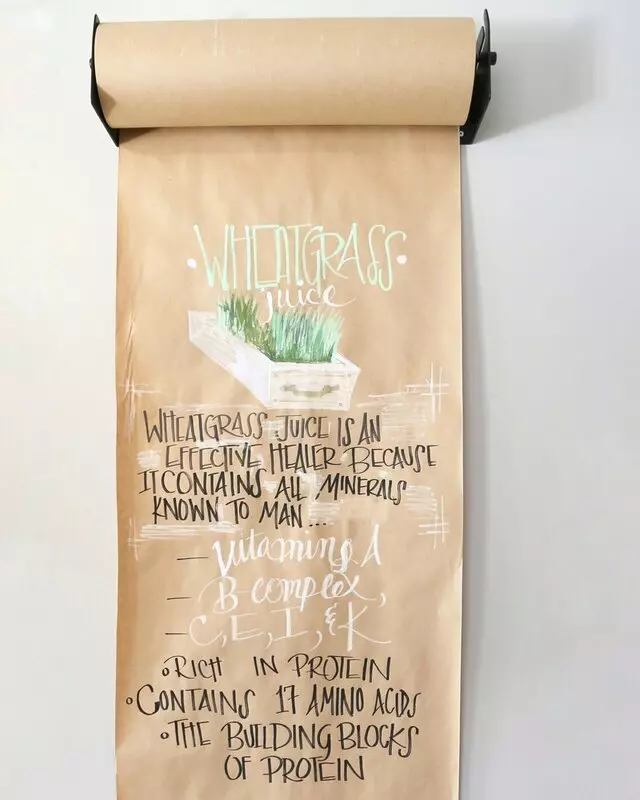 • WHEATGRASS •
juice
WHEATGRASS JUICE IS AN
EFFECTIVE HEALER BECAUSE
IT CONTAINS ALL MINERALS
KNOWN TO MAN...
— Vitamins A
— B-complex,
— C, E, I, & K
◦ RICH IN PROTEIN
◦ CONTAINS 17 AMINO ACIDS
◦ THE BUILDING BLOCKS
OF PROTEIN